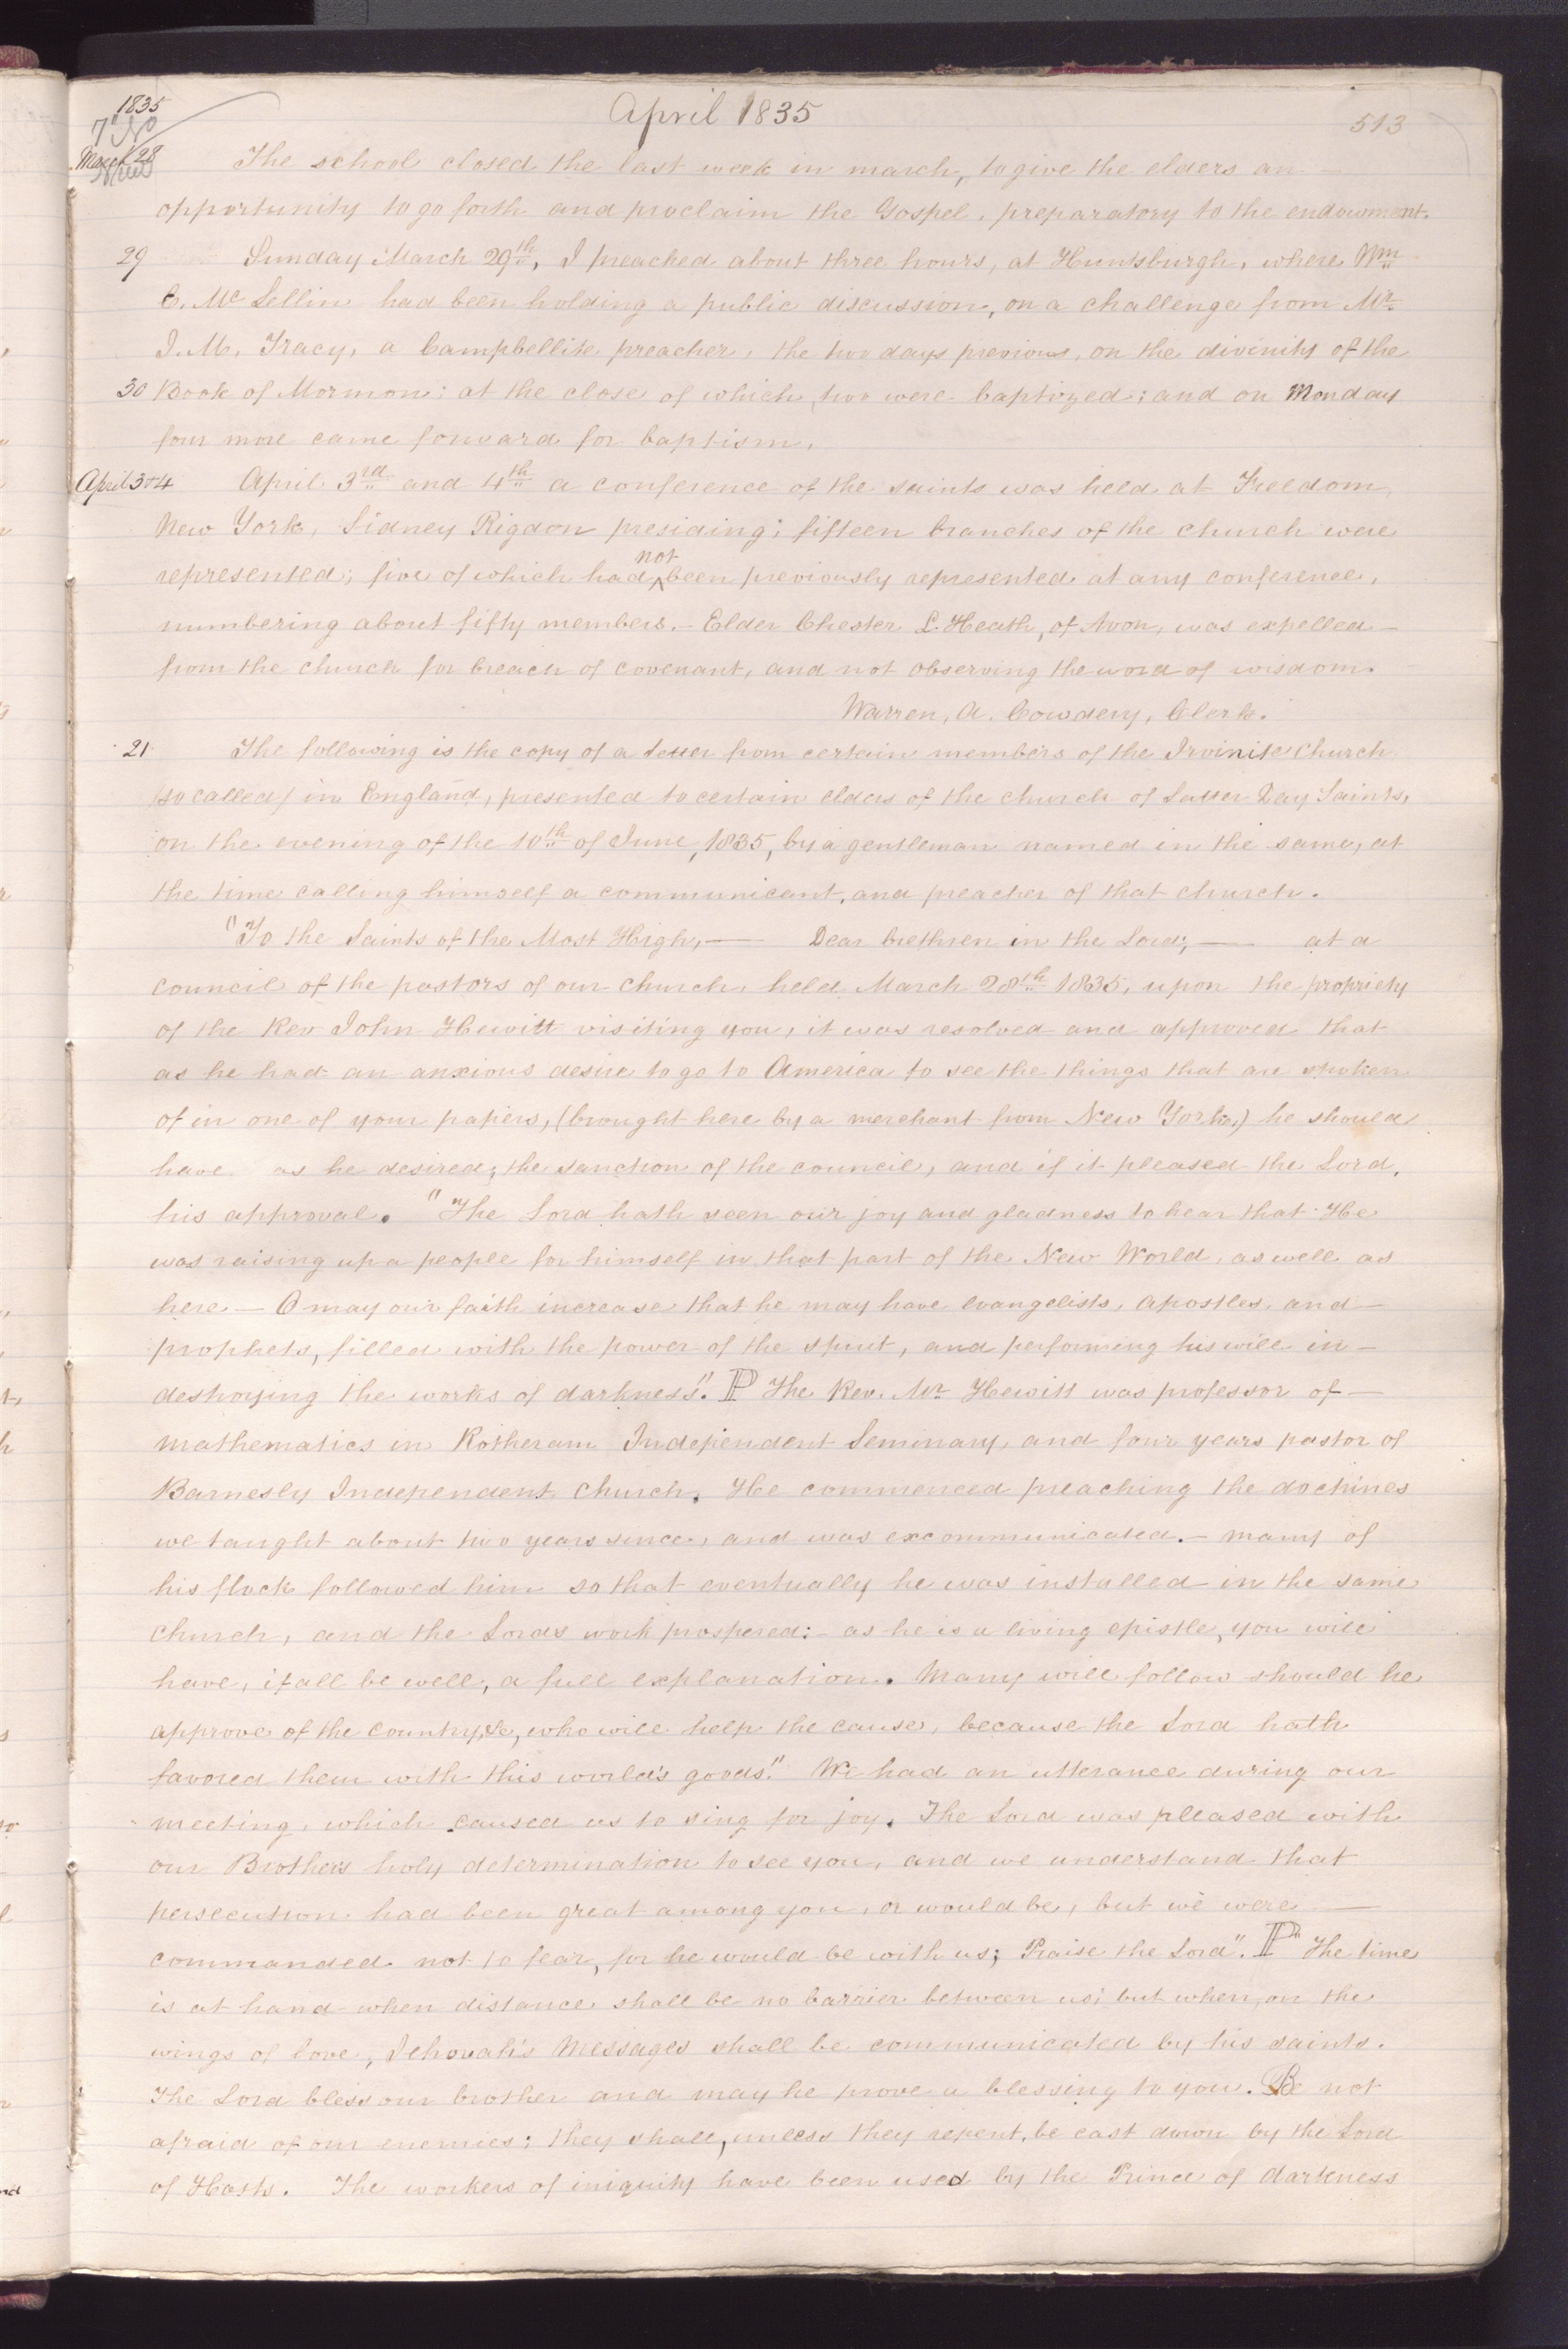 1835
April 1835
513
March 28
The school closed the last week in march, to give the elders an
opportunity to go forth and proclaim the Gospel, preparatory to the endowment.
29 Sunday March 29th, I preached about three hours, at Huntsburgh, where Wm
E. Mc Lellin had been holding a public discussion, on a challenge from Mr
J. M. Tracy, a Campbellite preacher, the two days previous, on the divinity of the
30 Book of Mormon; at the close of which, two were baptized; and on Monday
four more came forward for baptism.
April 3+4 April 3rd and 4th a conference of the saints was held at Freedom,
New York, Sidney Rigdon presiding; fifteen branches of the church were
represented; five of which had not been previously represented at any conference,
numbering about fifty members.- Elder Chester L. Heath, of Avon, was expelled-
from the church for breach of covenant, and not observing the word of wisdom.
Warren, A. Cowdery, Clerk.
21 The following is the copy of a letter from certain members of the Irvinite church
(so called) in England, presented to certain elders of the church of Latter Day Saints,
on the evening of the 10th of June, 1835, by a gentleman named in the same, at
the time calling himself a communicant, and preacher of that church.
"To the Saints of the Most High,— Dear brethren in the Lord;— at a
council of the pastors of our church, held March 28th 1835, upon the propriety
of the Rev John Hewitt visiting you, it was resolved and approved that
as he had an anxious desire to go to America to see the things that are spoken
of in one of your papers, (brought here by a merchant from New York,) he should
have as he desired; the sanction of the council, and if it pleased the Lord,
his approval. "The Lord hath seen our joy and gladness to hear that He
was raising up a people for himself in that part of the New World, as well as
here — O may our faith increase that he may have evangelists, apostles, and—
prophets, filled with the power of the spirit, and performing his will in—
destroying the works of darkness". P The Rev. Mr Hewitt was professor of—
mathematics in Rotheram Independent Seminary, and four years pastor of
Barnesly Independent Church. He commenced preaching the doctrines
we taught about two years since, and was excommunicated.- many of
his flock followed him so that eventually he was installed in the same
church, and the Lord's work prospered:- as he is a living epistle, you will
have, if all be well, a full explanation. Many will follow should he
approve of the country, &c, who will help the cause, because the Lord hath
favored them with this world's goods". We had an utterance during our
meeting, which caused us to sing for joy. The Lord was pleased with
our Brother's holy determination to see you, and we understand that
persecution had been great among you, or would be, but we were—
commanded not to fear, for he would be with us; Praise the Lord". P "The time
is at hand when distance shall be no barrier between us; but when, on the
wings of love, Jehovah's Messages shall be communicated by his saints.
The Lord bless our brother and may he prove a blessing to you. Be not
afraid of our enemies; they shall, unless they repent, be cast down by the Lord
of Hosts. The workers of iniquity have been used by the Prince of darkness